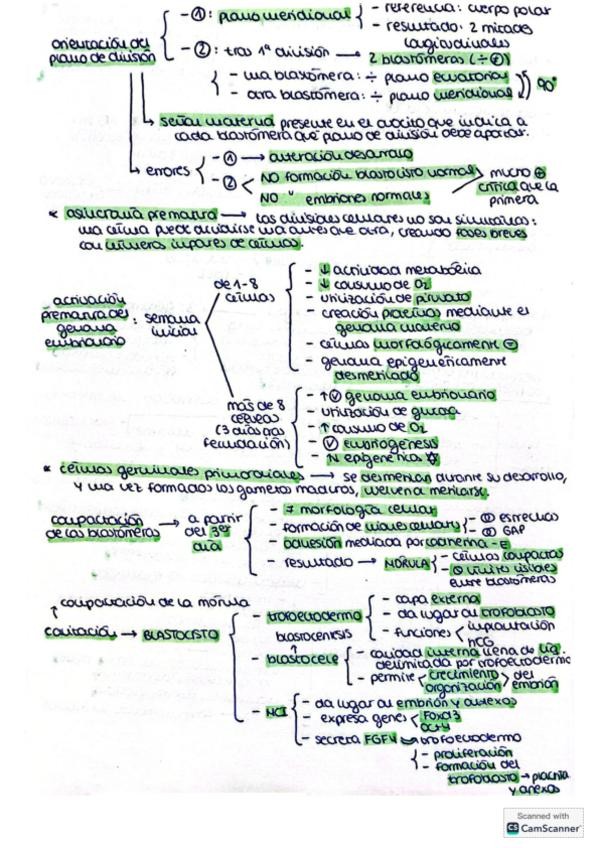 - ①: plano meridional
- referencia: cuerpo polar
- resultado: 2 mitades longitudinales
orientación del plano de división
- ②: tras 1ª división → 2 blastómeras (÷ ≠)
- una blastómera: ÷ plano ecuatorial
- otra blastómera: ÷ plano meridional
90°
señal materna presente en el ovocito que indica a
cada blastómera que plano de división debe adoptar.
errores
- ① → alteración desarrollo
- ② NO formación blastocisto normal
NO " embriones normales
mucho ⊕ crítica que la primera
* asincronía prematura → las divisiones celulares no son simultáneas:
una célula puede dividirse una antes que otra, creando fases breves
con números impares de células.
activación prematura del genoma embrionario : semana inicial
de 1-8 células
- ↓ actividad metabólica
- ↓ consumo de O₂
- utilización de piruvato
- creación proteínas mediante el
genoma materno
- células morfológicamente =
- genoma epigenéticamente
desmetilado
más de 8 células (3 días pas fecundación)
- ↑ genoma embrionario
- utilización de glucosa
- ↑ consumo de O₂
- embriogénesis
- N epigenética
* células germinales primordiales → se desmetilan durante su desarrollo,
y una vez formados los gametos maduros, vuelven a metilarse.
compactación de las blastómeras → a partir del 3er día
- ≠ morfología celular
- formación de uniones celulares
- estrechas
- GAP
- adhesión mediada por cadherina-E
- resultado → MÓRULA
- células compactas
- límites visibles
entre blastómeras
↑ compactación de la mórula
cavitación → BLASTOCISTO
- trofoectodermo
- capa externa
- da lugar al trofoblasto
- funciones
implantación
hCG
blastogénesis
↑
- blastocele
- cavidad interna llena de líq.
delimitada por trofoectodermo
- permite crecimiento
organización
del embrión
- MCI
- da lugar al embrión y anexos
- expresa genes
Foxd3
Oct4
- secreta FGF4 → trofoectodermo
- proliferación
- formación del
trofoblasto → placenta
y anexos
Scanned with
CS CamScanner